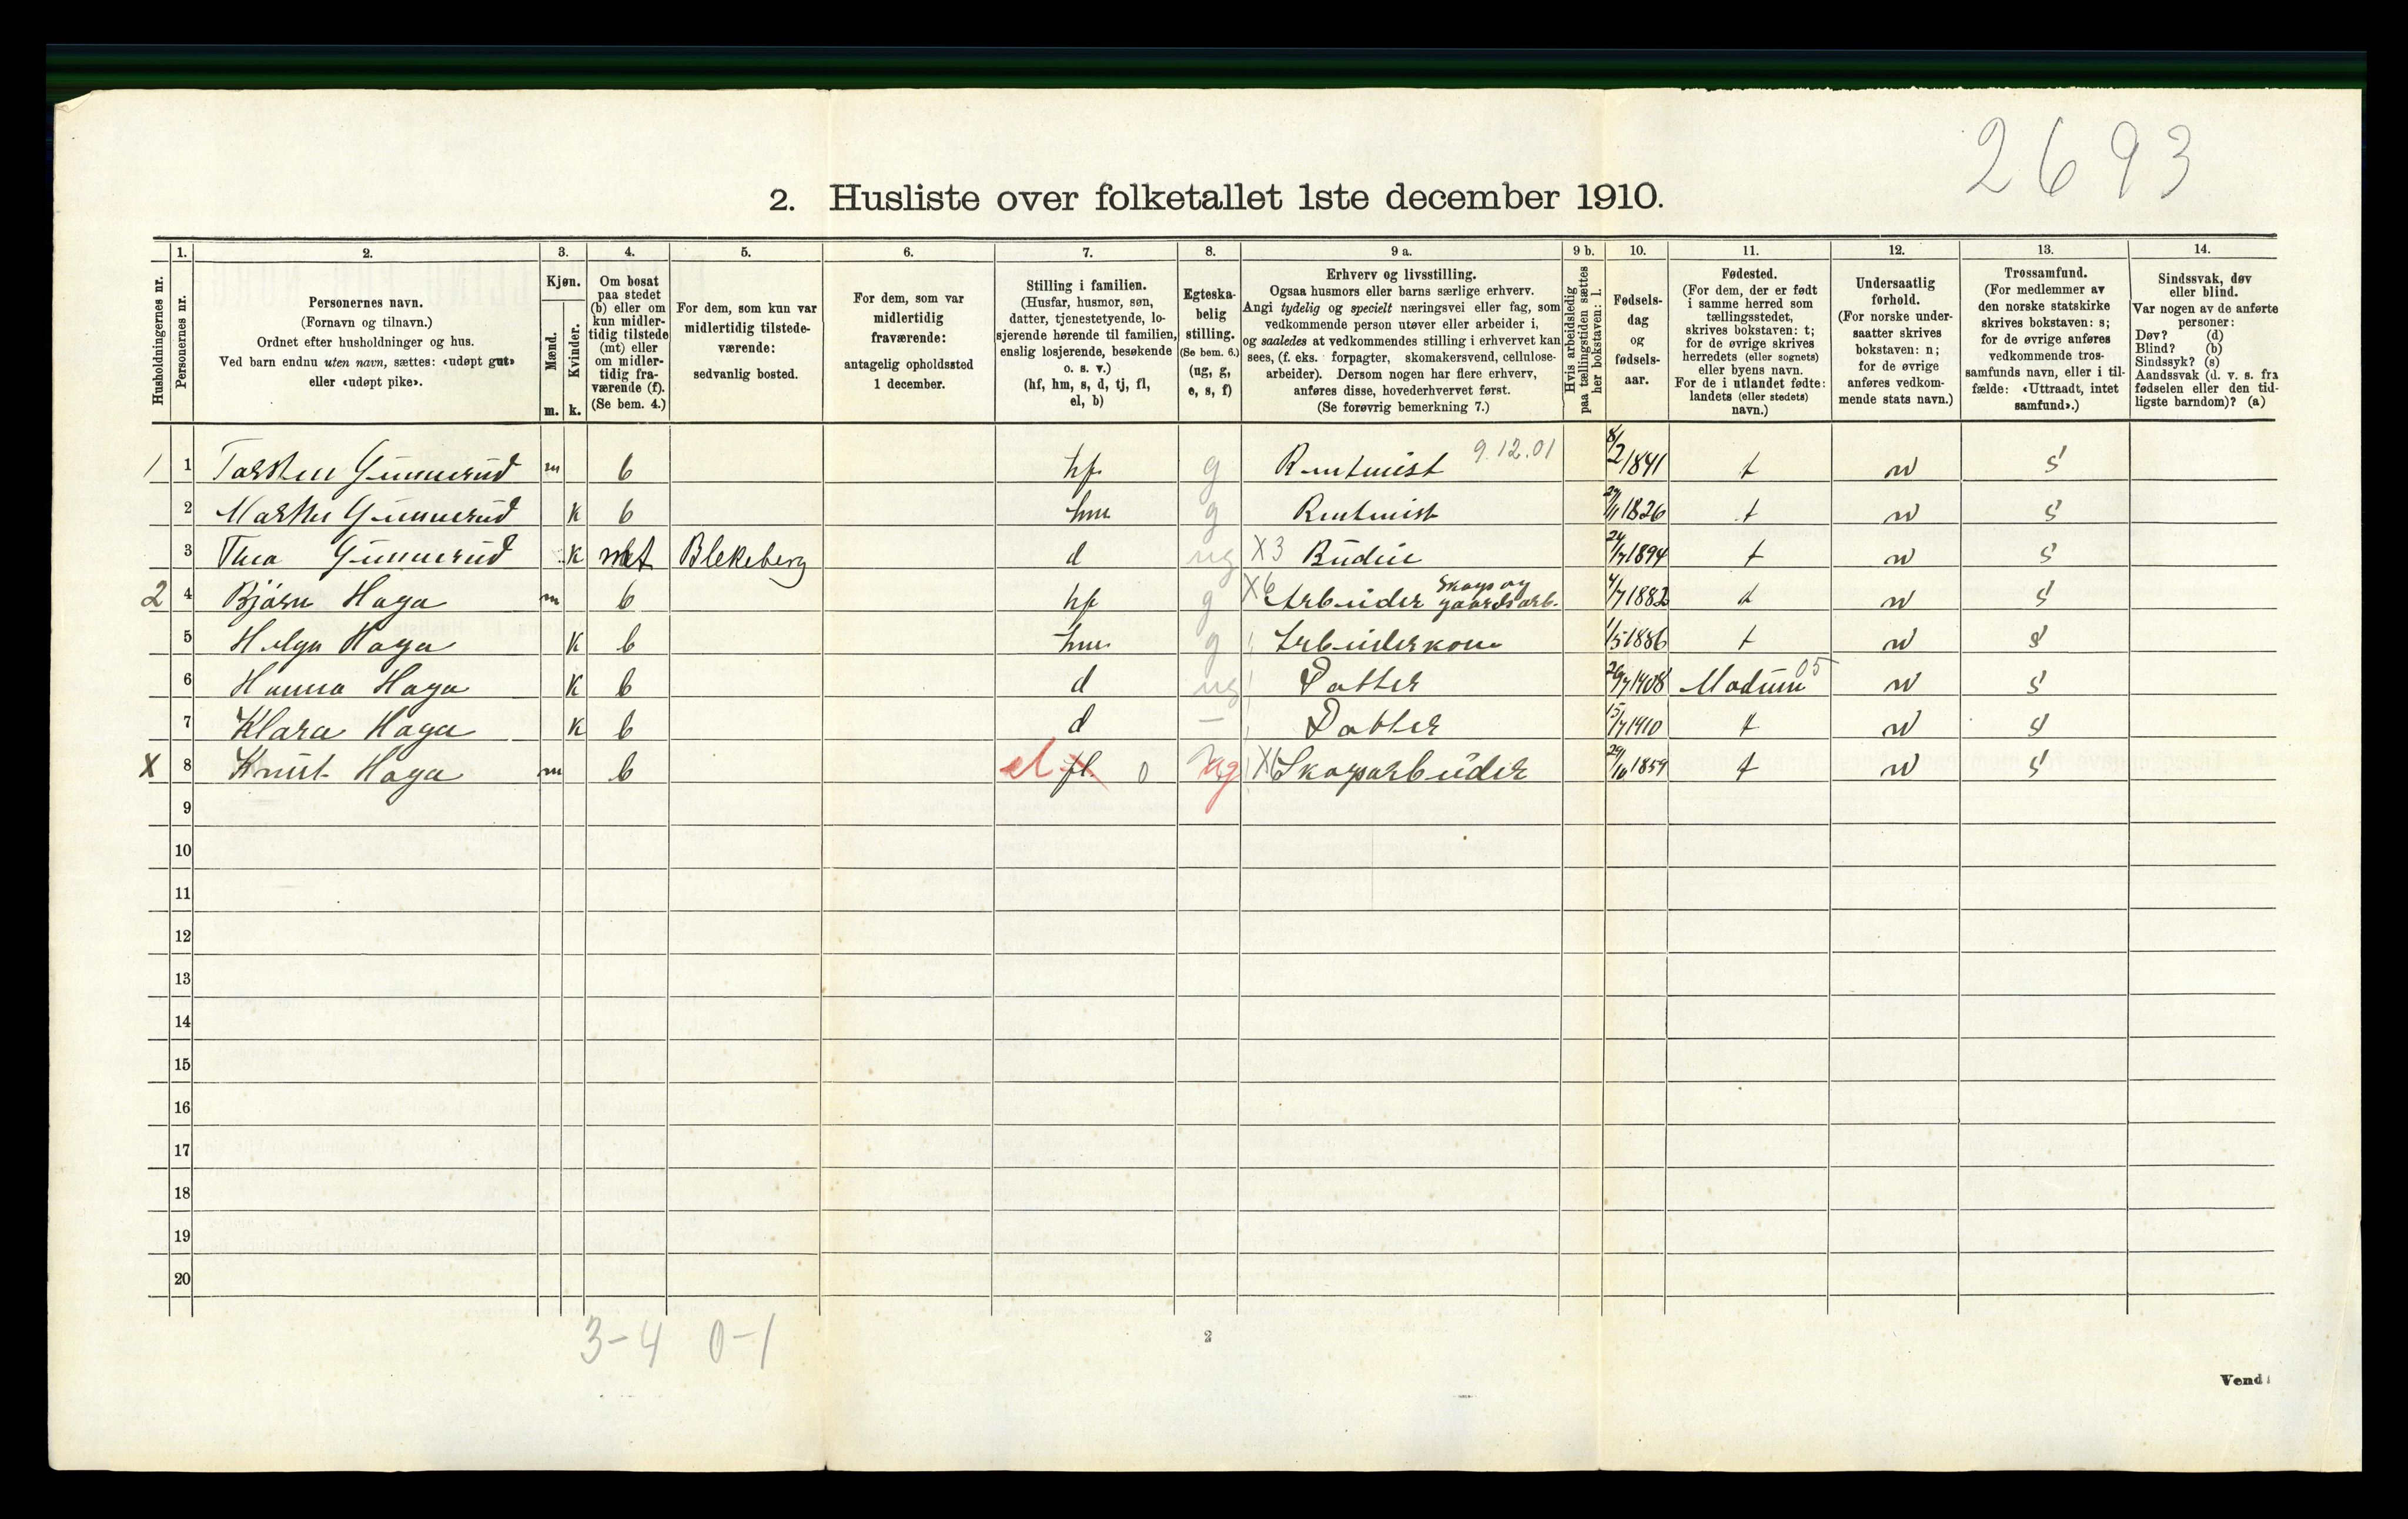 2693
2. Husliste over folketallet 1ste december 1910.
1. 2. 3. 4. 5. 6. 7. 8. 9 a. 9 b. 10. 11. 12. 13. 14.
Husholdningernes nr.
Personernes nr.
Personernes navn.
(Fornavn og tilnavn.)
Ordnet efter husholdninger og hus.
Ved barn endnu uten navn, sættes: «udøpt gut»
eller «udøpt pike».
Kjøn.
Mænd.
Kvinder.
m. k.
Om bosat
paa stedet
(b) eller om
kun midler-
tidig tilstede
(mt) eller
om midler-
tidig fra-
værende (f).
(Se bem. 4.)
For dem, som kun var
midlertidig tilstede-
værende:
sedvanlig bosted.
For dem, som var
midlertidig
fraværende:
antagelig opholdssted
1 december.
Stilling i familien.
(Husfar, husmor, søn,
datter, tjenestetyende, lo-
sjerende hørende til familien,
enslig losjerende, besøkende
o. s. v.)
(hf, hm, s, d, tj, fl,
el, b)
Egteska-
belig
stilling.
(Se bem. 6.)
(ug, g,
e, s, f)
Erhverv og livsstilling.
Ogsaa husmors eller barns særlige erhverv.
Angi tydelig og specielt næringsvei eller fag, som
vedkommende person utøver eller arbeider i,
og saaledes at vedkommendes stilling i erhvervet kan
sees, (f. eks. forpagter, skomakersvend, cellulose-
arbeider). Dersom nogen har flere erhverv,
anføres disse, hovederhvervet først.
(Se forøvrig bemerkning 7.)
Hvis arbeidsledig
paa tællingstiden sættes
her bokstaven: l.
Fødsels-
dag
og
fødsels-
aar.
Fødested.
(For dem, der er født
i samme herred som
tællingsstedet,
skrives bokstaven: t;
for de øvrige skrives
herredets (eller sognets)
eller byens navn.
For de i utlandet fødte:
landets (eller stedets)
navn.)
Undersaatlig
forhold.
(For norske under-
saatter skrives
bokstaven: n;
for de øvrige
anføres vedkom-
mende stats navn.)
Trossamfund.
(For medlemmer av
den norske statskirke
skrives bokstaven: s;
for de øvrige anføres
vedkommende tros-
samfunds navn, eller i til-
fælde: «Uttraadt, intet
samfund».)
Sindssvak, døv
eller blind.
Var nogen av de anførte
personer:
Døv? (d)
Blind? (b)
Sindssyk? (s)
Aandssvak (d. v. s. fra
fødselen eller den tid-
ligste barndom)? (a)
1 1 Torsten Gunnerud m b hf g Rentenist 9.12.01 8/2 1841 t n s
2 Marthe Gunnerud k b hm g Rentenist 1826 t n s
3 Thea Gunnerud k mt Blekeberg d ug X3 Budeie 24/7 1894 t n s
2 4 Bjørn Haga m b hf g X6 Arbeider Skogs og gaardsarb. 4/7 1882 t n s
5 Helga Haga k b hm g Arbeiderkone 1/5 1886 t n s
6 Hanna Haga k b d ug Datter 26/7 1908 Modum 05 n s
7 Klara Haga k b d — Datter 15/7 1910 t n s
X 8 Knut Haga m b el fl. 0 ug X6 Skogsarbeider 29/10 1859 t n s
9
10
11
12
13
14
15
16
17
18
19
20
3-4 0-1
2
Vend!